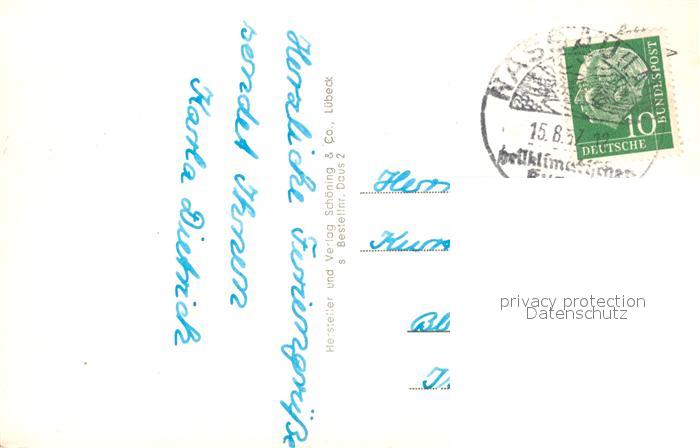 Herzliche Feriengrüße
sendet Ihnen
Karla Dietrich
Hersteller und Verlag Schöning & Co., Lübeck
s Bestellnr. Daus 2
NASSAU
15.8.57
heilklimatischer
10
DEUTSCHE
BUNDESPOST
Herrn
Kurt
privacy protection
Datenschutz